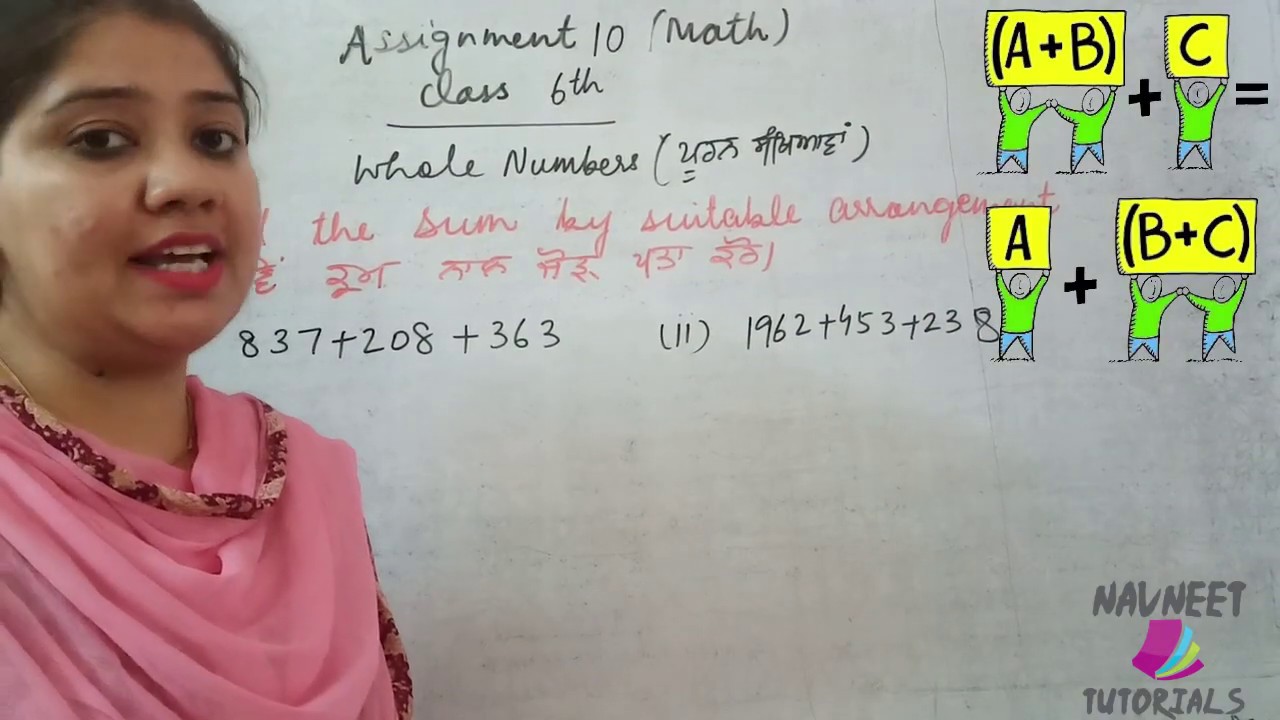 Assignment 10 (Math)
Class 6th
Whole Numbers (ਪੂਰਨ ਸੰਖਿਆਵਾਂ)
the sum by suitable arrangement
ਰੂਪ ਨਾਲ ਜੋੜ ਪਤਾ ਕਰੋ।
837+208+363
(ii) 1962+453+238
(A+B) + C =
A + (B+C)
NAVNEET
TUTORIALS